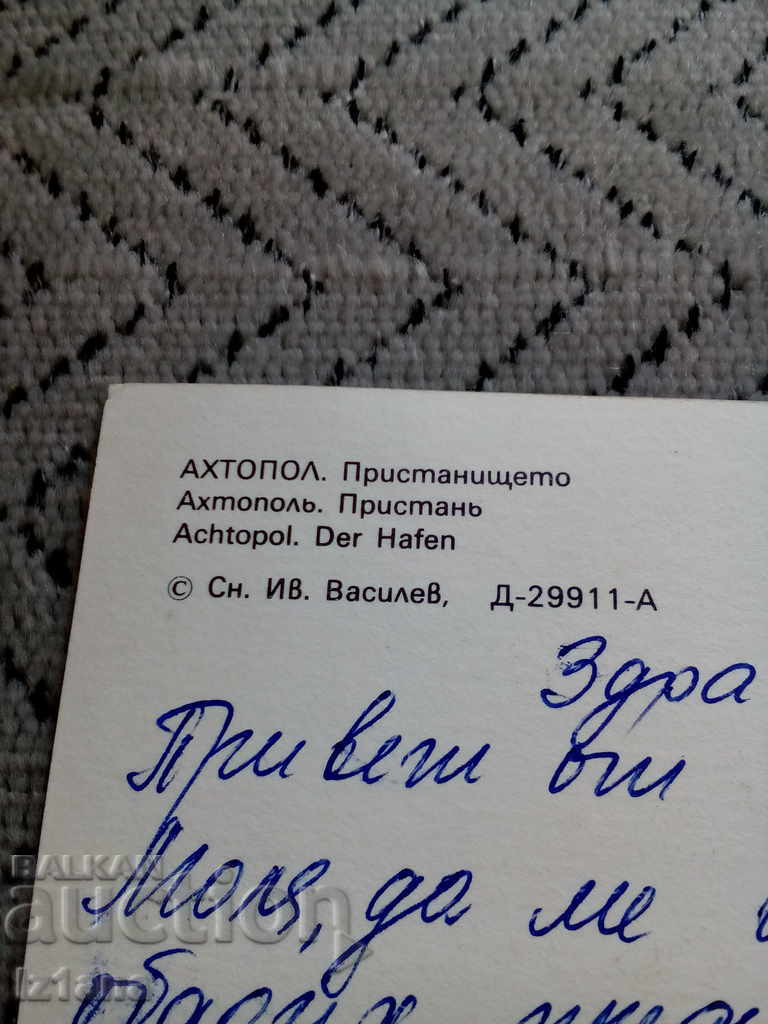 АХТОПОЛ. Пристанището
Ахтополь. Пристань
Achtopol. Der Hafen
© Сн. Ив. Василев, Д-29911-А
Здра
Привет от
Моля, да ме
BALKAN
auction
Iz1ana